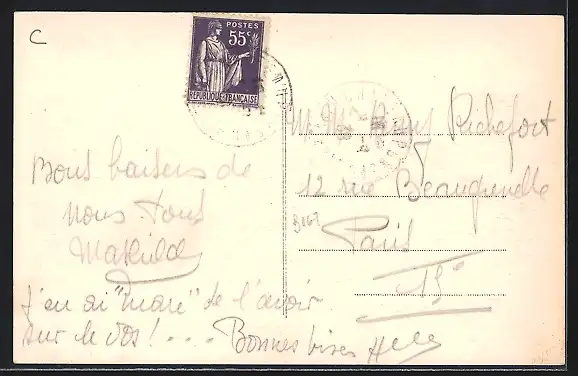 C
POSTES
55c
REPUBLIQUE FRANÇAISE
Bons baisers de
nous tous
Mathilde
j'en ai "marre" de l'avoir
sur le dos! ....
Bonnes bises
M. Mme Rochefort
12 rue Beaugrenelle
Paris
15e